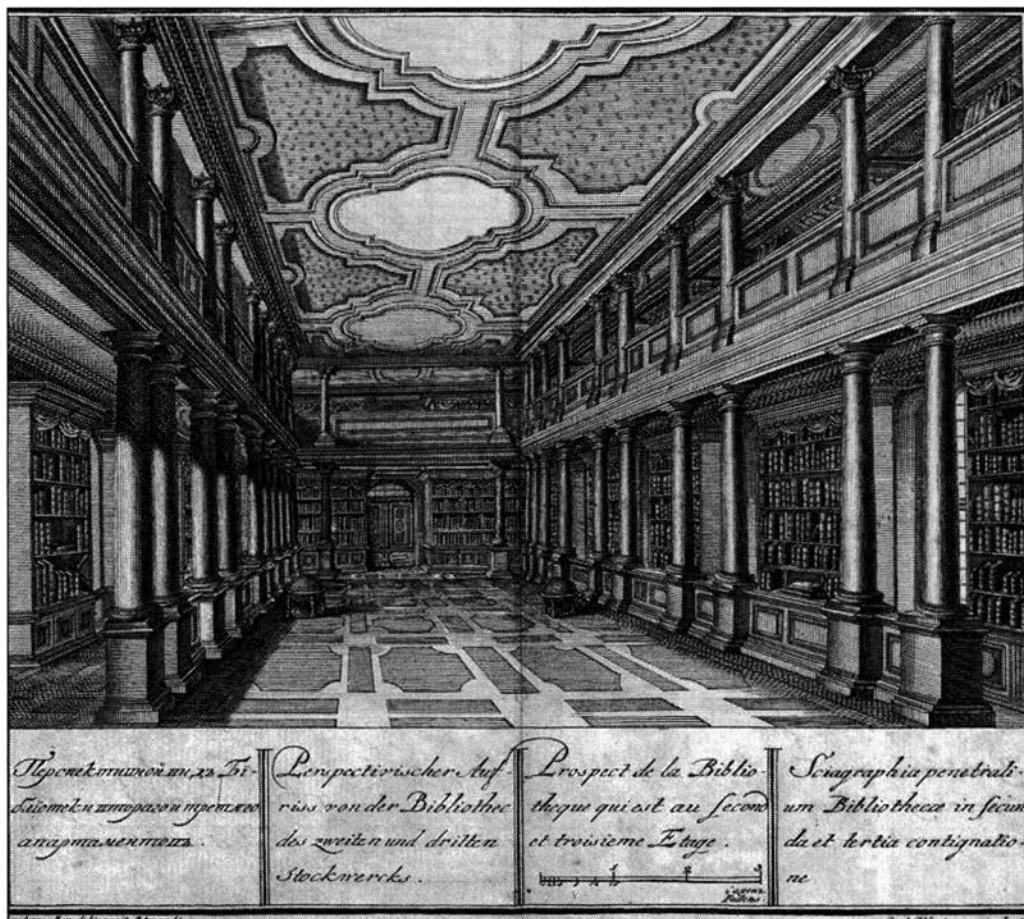 Перспективной видъ Би-
блиотеки втораго и третяго
апартаментовъ.
Perspectivischer Auf-
riss von der Bibliothec
des zweiten und dritten
Stockwercks.
Prospect de la Biblio-
theque qui est au second
et troisieme Etage.
Sciagraphia penetrali-
um Bibliothecæ in secun
da et tertia contignatio-
ne